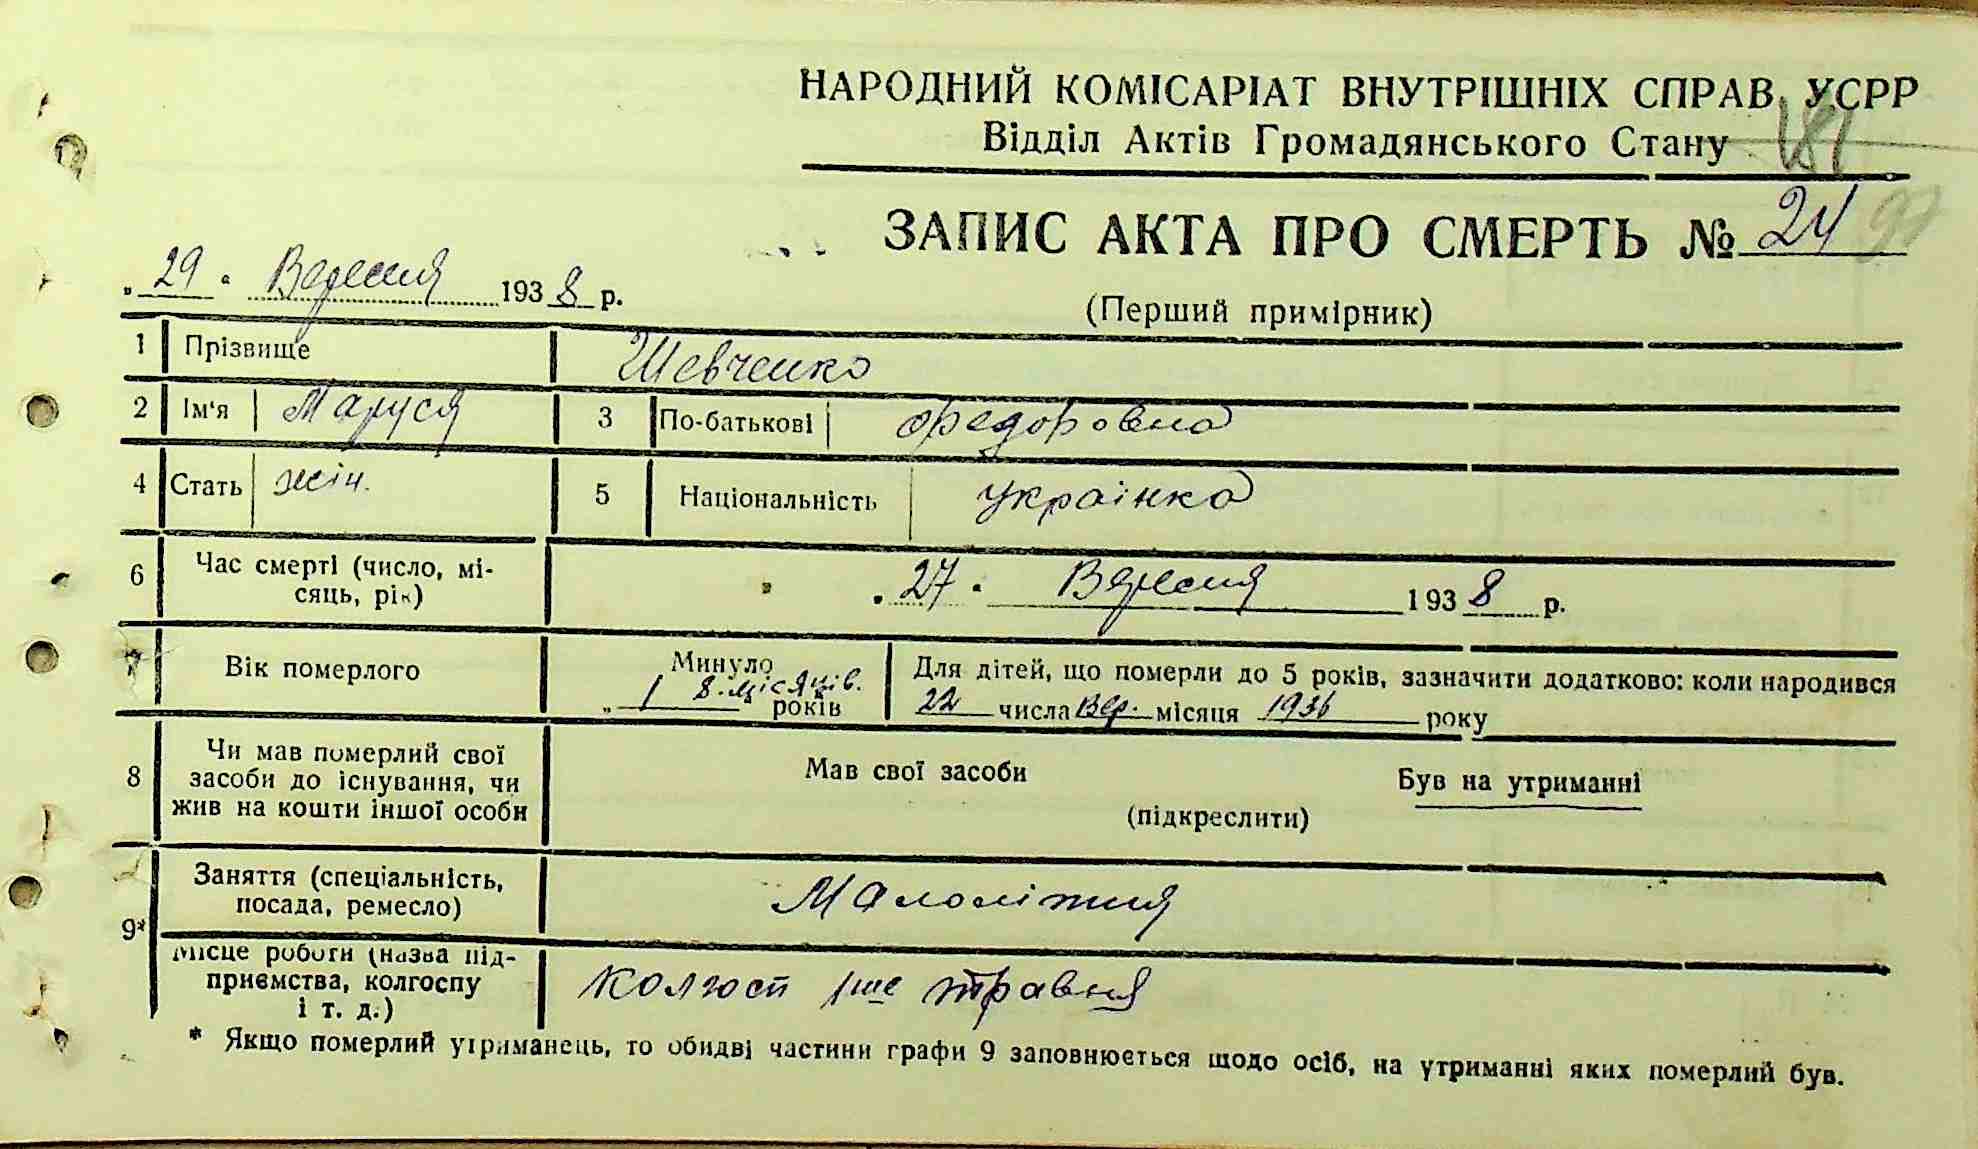 НАРОДНИЙ КОМІСАРІАТ ВНУТРІШНІХ СПРАВ УСРР
Відділ Актів Громадянського Стану 181
ЗАПИС АКТА ПРО СМЕРТЬ № 24 97
„ 29 “ Вересня 1938 р.
(Перший примірник)
1 Прізвище Шевченко
2 Ім'я Маруся 3 По-батькові Федоровна
4 Стать жін. 5 Національність українка
6 Час смерті (число, мі-
сяць, рік) „ 27 “ Вересня 1938 р.
7 Вік померлого Минуло Для дітей, що померли до 5 років, зазначити додатково: коли народився
„ 1 8. місяців. років 22 числа Вер. місяця 1936 року
8 Чи мав померлий свої
засоби до існування, чи
жив на кошти іншої особи
Мав свої засоби Був на утриманні
(підкреслити)
9* Заняття (спеціальність,
посада, ремесло) Малолітня
Місце роботи (назва під-
приємства, колгоспу
і т. д.) колгосп 1ше травня
* Якщо померлий утриманець, то обидві частини графи 9 заповнюється щодо осіб, на утриманні яких померлий був.